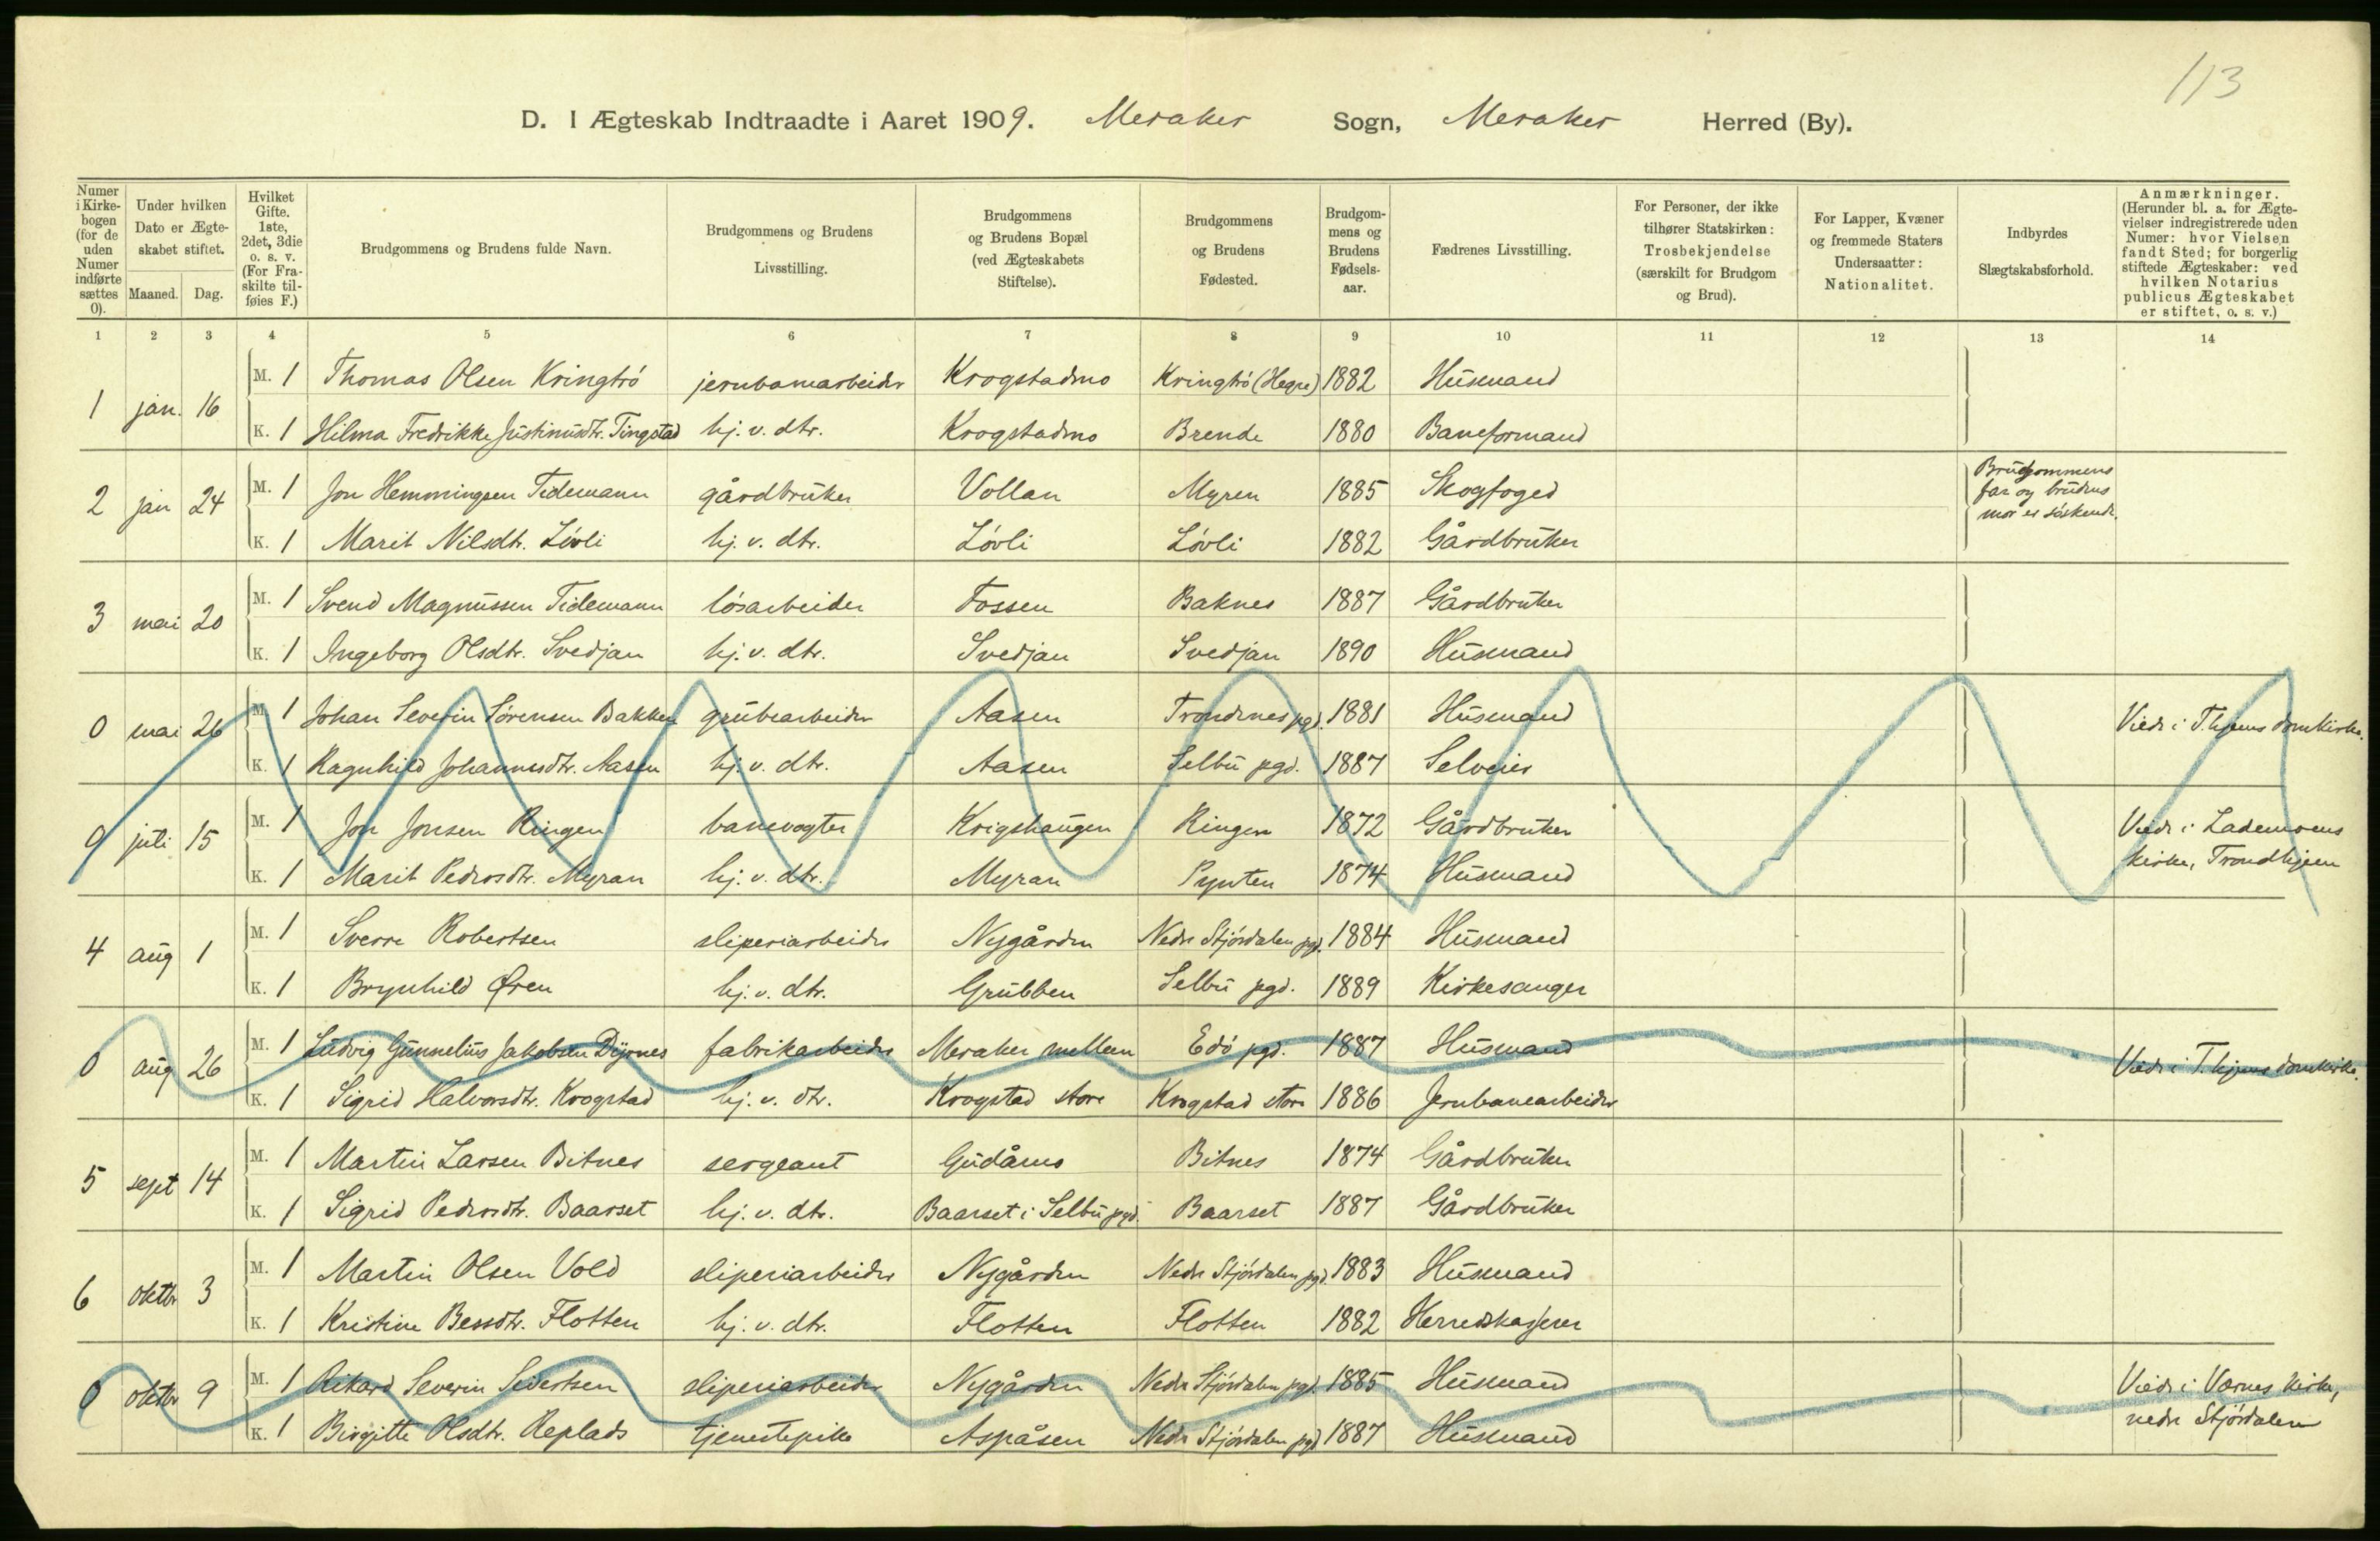 113
D. I Ægteskab Indtraadte i Aaret 1909. Meraker Sogn, Meraker Herred (By).
Numer i Kirkebogen (for de uden Numer indførte sættes 0).
Under hvilken Dato er Ægteskabet stiftet.
Maaned. Dag.
Hvilket Gifte. 1ste, 2det, 3die o. s. v. (For Fraskilte tilføies F.)
Brudgommens og Brudens fulde Navn.
Brudgommens og Brudens Livsstilling.
Brudgommens og Brudens Bopæl (ved Ægteskabets Stiftelse).
Brudgommens og Brudens Fødested.
Brudgommens og Brudens Fødselsaar.
Fædrenes Livsstilling.
For Personer, der ikke tilhører Statskirken: Trosbekjendelse (særskilt for Brudgom og Brud).
For Lapper, Kvæner og fremmede Staters Undersaatter: Nationalitet.
Indbyrdes Slægtskabsforhold.
Anmærkninger. (Herunder bl. a. for Ægtevielser indregistrerede uden Numer: hvor Vielsen fandt Sted; for borgerlig stiftede Ægteskaber: ved hvilken Notarius publicus Ægteskabet er stiftet, o. s. v.)
1 2 3 4 5 6 7 8 9 10 11 12 13 14
1 jan. 16 M. 1 Thomas Olsen Kringtrö jernbanearbeider Krogstadmo Kringtrö (Hegre) 1882 Husmand
K. 1 Hilma Fredrikke Justinusdtr. Tingstad hj. v. dtr. Krogstadmo Brende 1880 Baneformand
2 jan 24 M. 1 Jon Hemmingsen Tidemann gårdbruker Vollan Myren 1885 Skogfoged Brudgommens far og brudens mor er söskende.
K. 1 Marit Nilsdtr. Lövli hj. v. dtr. Lövli Lövli 1882 Gårdbruker
3 mai 20 M. 1 Svend Magnussen Tidemann lösarbeider Fossen Baknes 1887 Gårdbruker
K. 1 Ingeborg Olsdtr. Svedjan hj. v. dtr. Svedjan Svedjan 1890 Husmand
0 mai 26 M. 1 Johan Severin Sörensen Bakken grubearbeider Aasen Trondenes pgd. 1881 Husmand Viede i T.hjems domkirke.
K. 1 Ragnhild Johannesdtr. Aasen hj. v. dtr. Aasen Selbu pgd. 1887 Selveier
0 juli 15 M. 1 Jon Jonsen Ringen banevogter Krigshaugen Ringen 1872 Gårdbruker Viede i Lademoens
K. 1 Marit Pedersdtr. Myran hj. v. dtr. Myran Pynten 1874 Husmand kirke, Trondhjem
4 aug 1 M. 1 Sverre Robertsen sliperiarbeider Nygården Nedre Stjördalen pgd. 1884 Husmand
K. 1 Brynhild Øren hj. v. dtr. Grubben Selbu pgd. 1889 Kirkesanger
0 aug 26 M. 1 Ludvig Gunnelius Jakobsen Dyrnes fabrikarbeider Meraker mellem Edö pgd. 1887 Husmand Viede i T.hjems domkirke.
K. 1 Sigrid Halvorsdtr. Krogstad hj. v. dtr. Krogstad store Krogstad store 1886 Jernbanearbeider
5 sept 14 M. 1 Martin Larsen Bitnes sergeant Gudåmo Bitnes 1874 Gårdbruker
K. 1 Sigrid Pedersdtr. Baarset hj. v. dtr. Baarset i Selbu pgd. Baarset 1887 Gårdbruker
6 oktbr 3 M. 1 Martin Olsen Vold sliperiarbeider Nygården Nedre Stjördalen pgd. 1883 Husmand
K. 1 Kristine Bersdtr. Flotten hj. v. dtr. Flotten Flotten 1882 Herredskasserer
0 oktbr 9 M. 1 Rikard Severin Sivertsen sliperiarbeider Nygården Nedre Stjördalen pgd. 1885 Husmand Viede i Værnes kirke,
K. 1 Birgitte Olsdtr. Replads tjenestepike Aspåsen Nedre Stjördalen pgd 1887 Husmand nedre Stjördalen